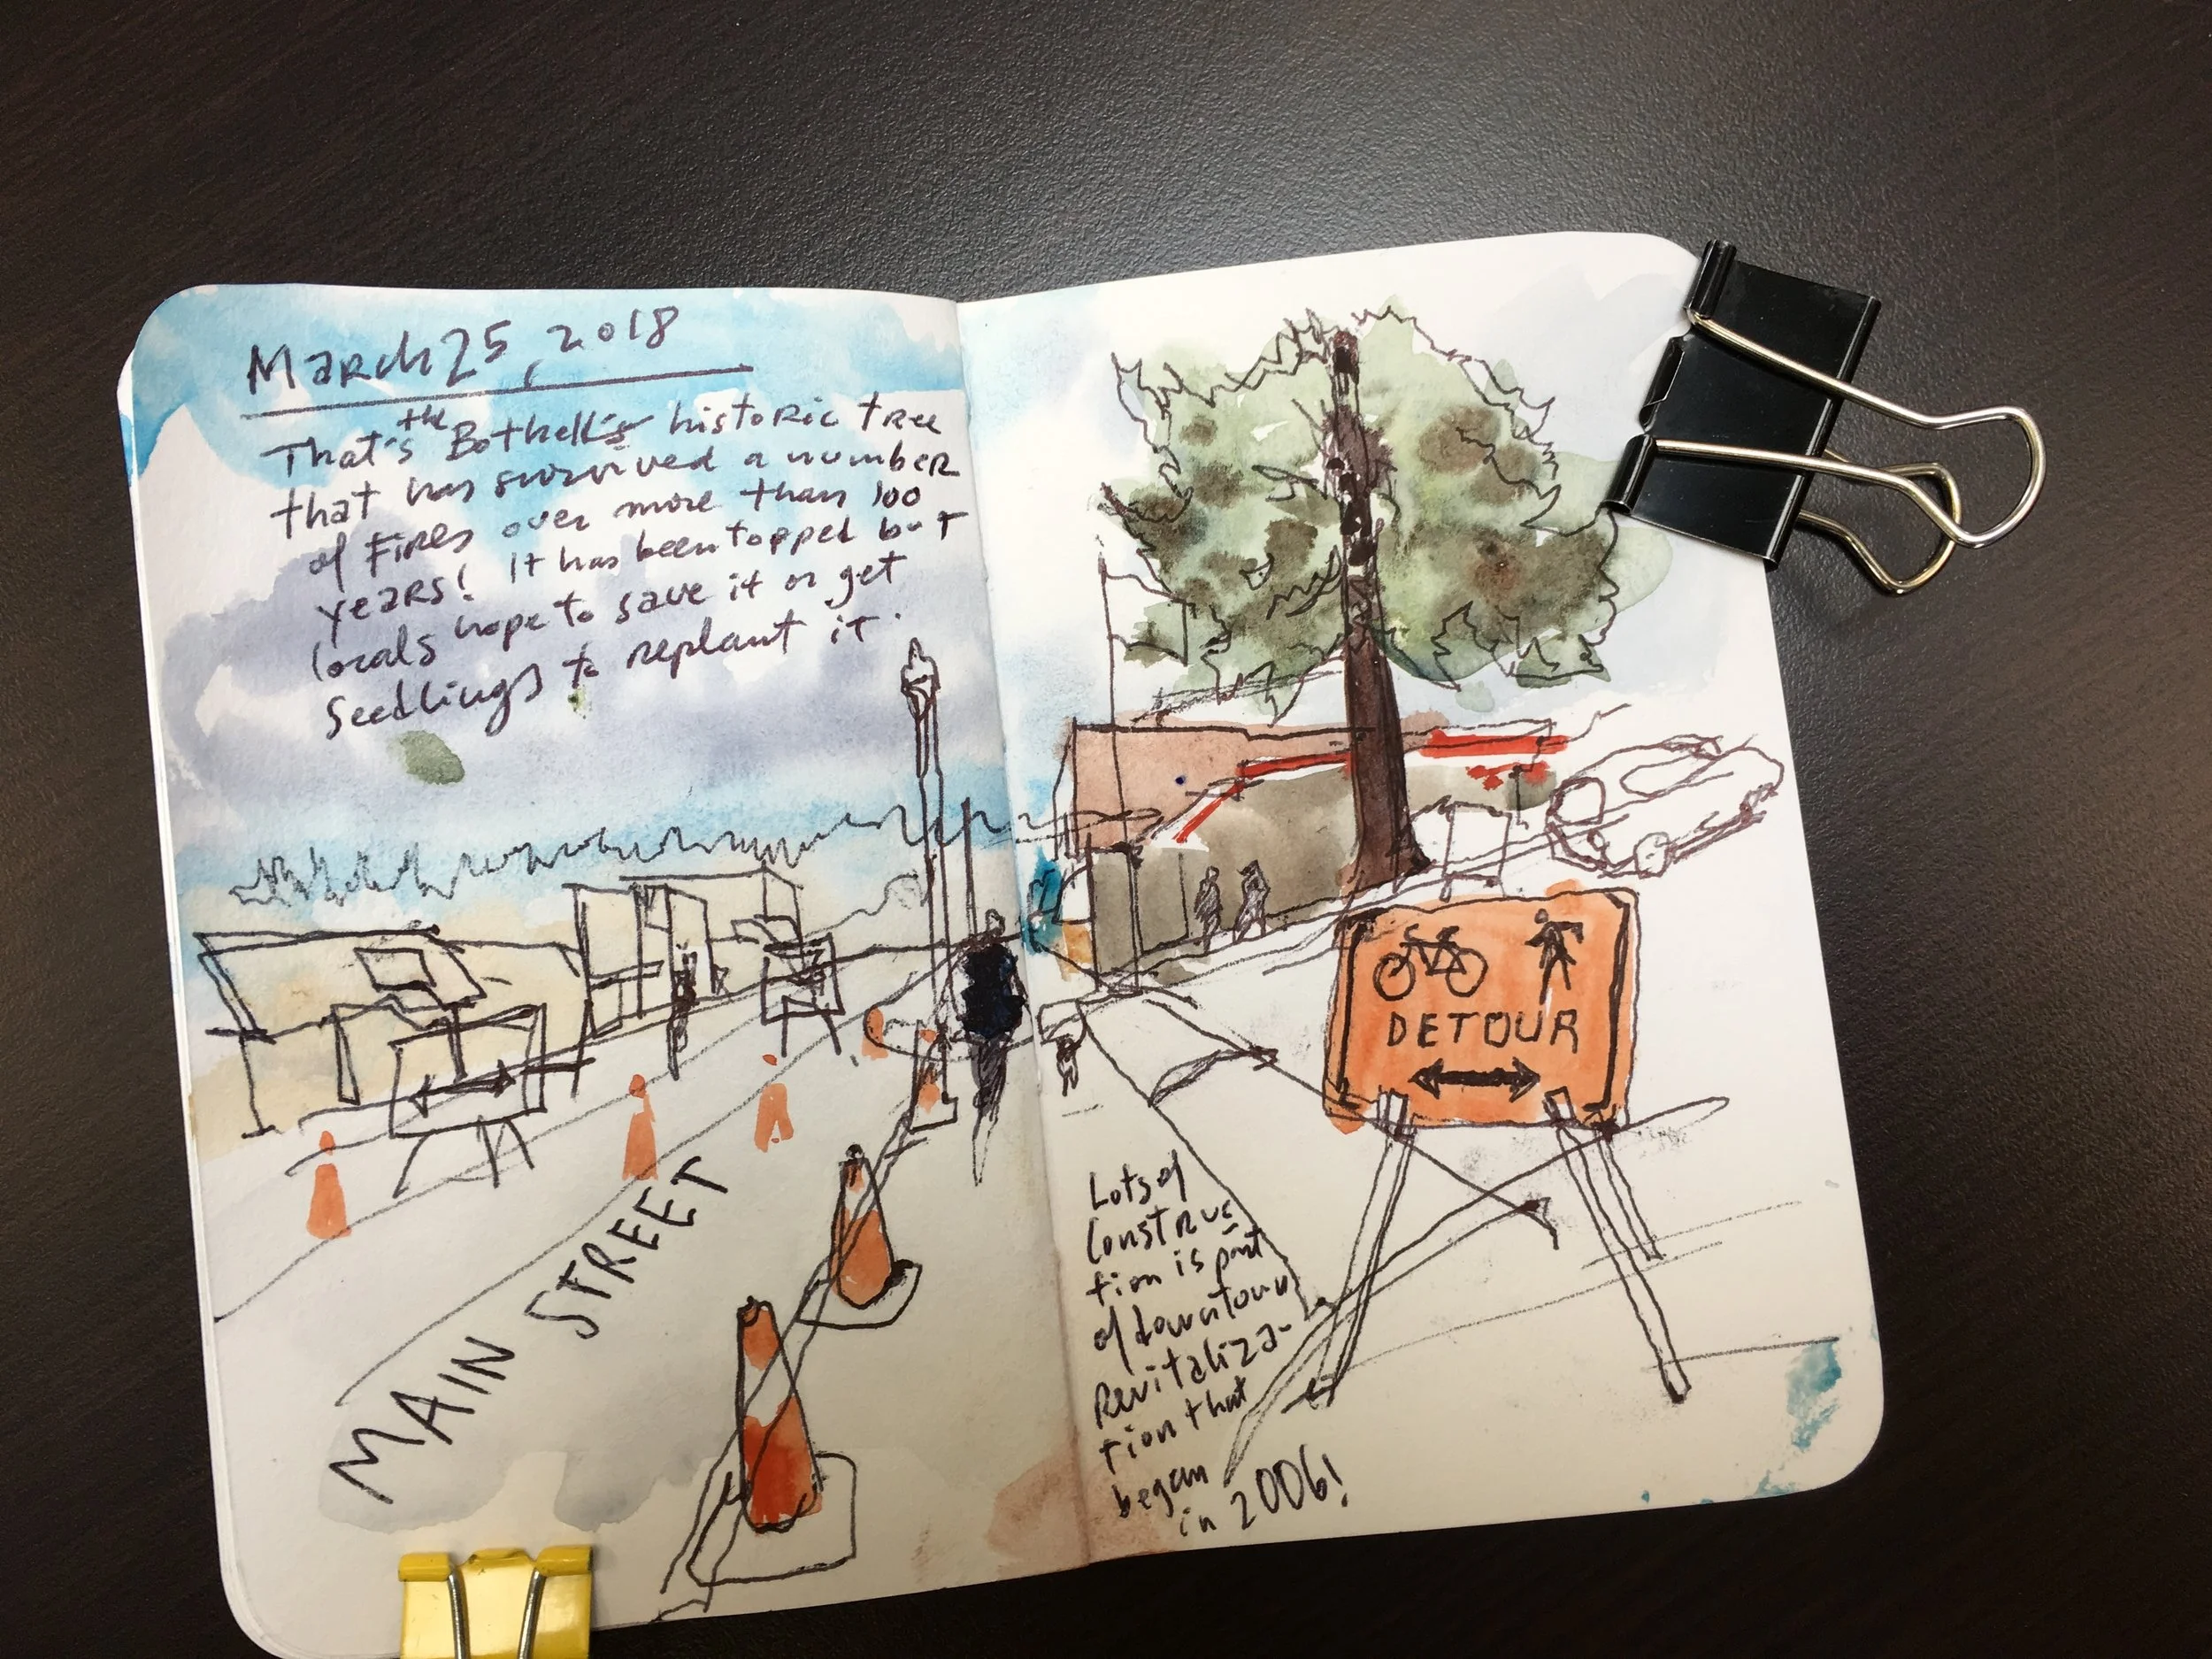 March 25, 2018
That's the Bothell's historic tree
that has survived a number
of fires over more than 100
years! It has been topped but
locals hope to save it or get
seedlings to replant it.
MAIN STREET
DETOUR
Lots of
construc
tion is part
of downtown
revitaliza-
tion that
began
in 2006!